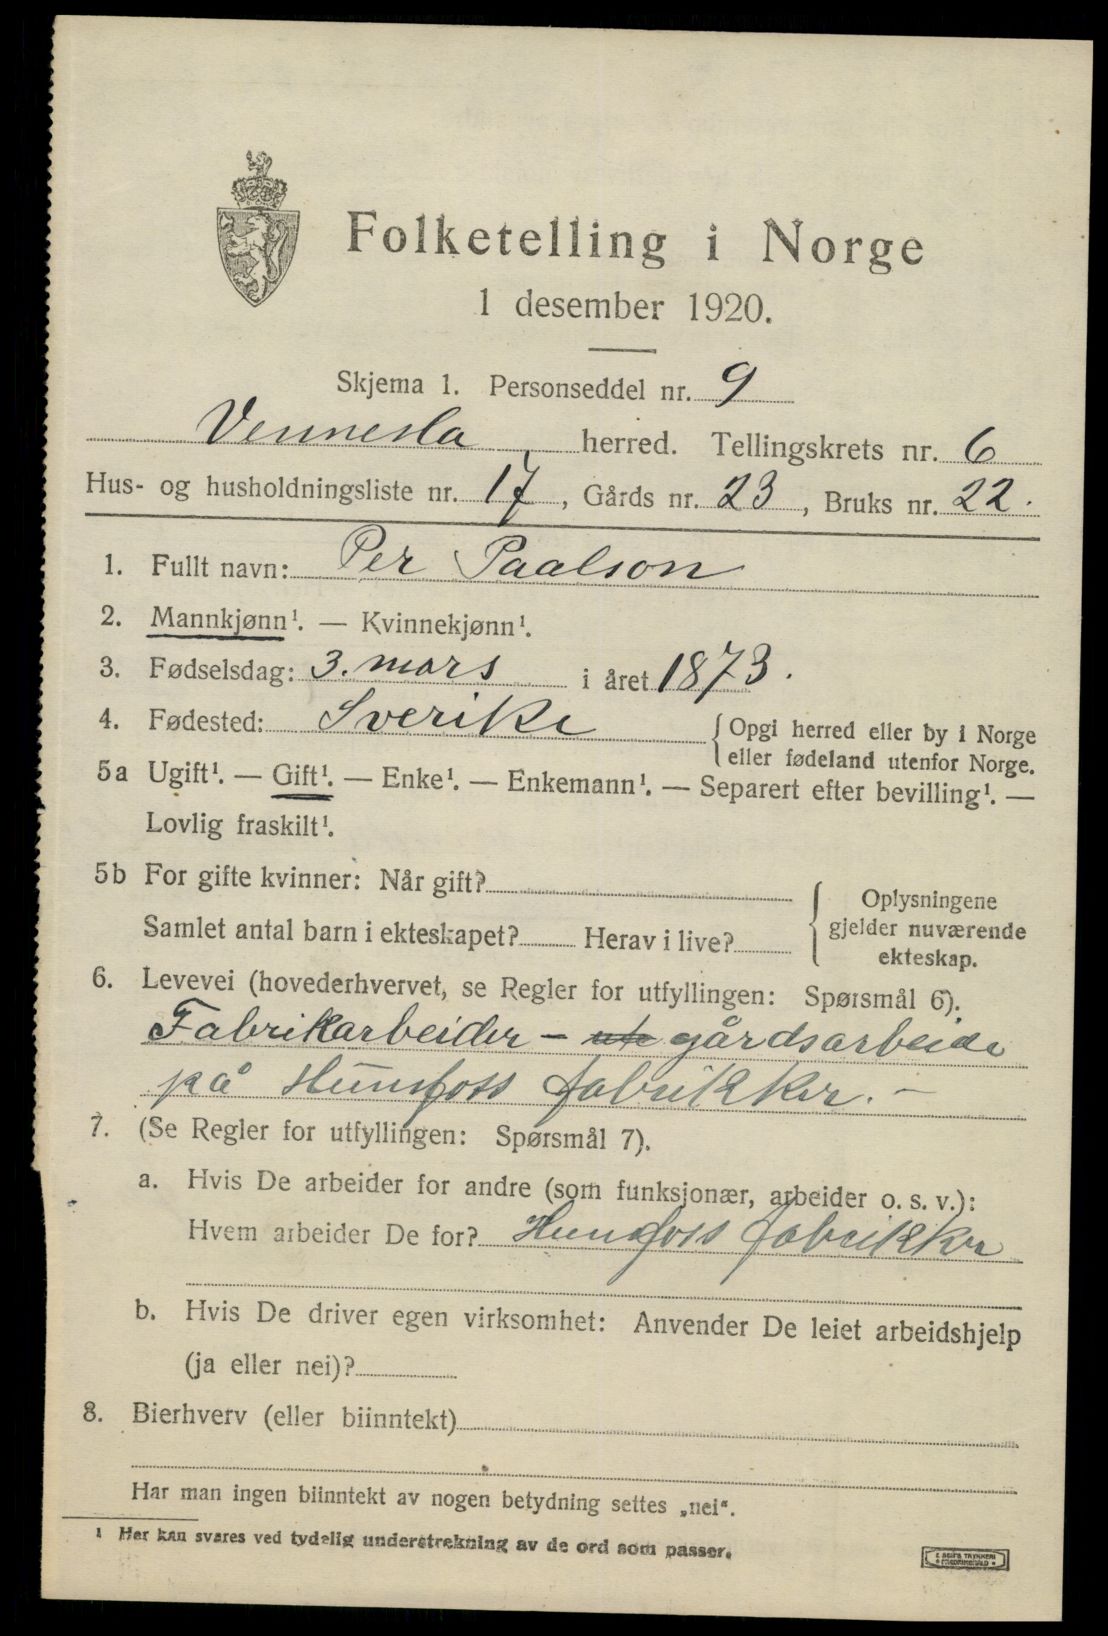 Folketelling i Norge
1 desember 1920.
Skjema 1. Personseddel nr. 9
Vennesla herred. Tellingskrets nr. 6
Hus- og husholdningsliste nr. 17, Gårds nr. 23, Bruks nr. 22.
1. Fullt navn: Per Paalson
2. Mannkjønn¹. — Kvinnekjønn¹.
3. Fødselsdag: 3. mars i året 1873.
4. Fødested: Sverike {Opgi herred eller by i Norge
eller fødeland utenfor Norge.
5a Ugift¹. — Gift¹. — Enke¹. — Enkemann¹. — Separert efter bevilling¹. —
Lovlig fraskilt¹.
5b For gifte kvinner: Når gift?
Samlet antal barn i ekteskapet? Herav i live?
{ Oplysningene
gjelder nuværende
ekteskap.
6. Levevei (hovederhvervet, se Regler for utfyllingen: Spørsmål 6).
Fabrikarbeider – ute gårdsarbeide
på Hunsfoss fabrikker. –
7. (Se Regler for utfyllingen: Spørsmål 7).
a. Hvis De arbeider for andre (som funksjonær, arbeider o. s. v.):
Hvem arbeider De for? Hunsfoss fabrikker
b. Hvis De driver egen virksomhet: Anvender De leiet arbeidshjelp
(ja eller nei)?
8. Bierhverv (eller biinntekt)
Har man ingen biinntekt av nogen betydning settes „nei“.
¹ Her kan svares ved tydelig understrekning av de ord som passer.